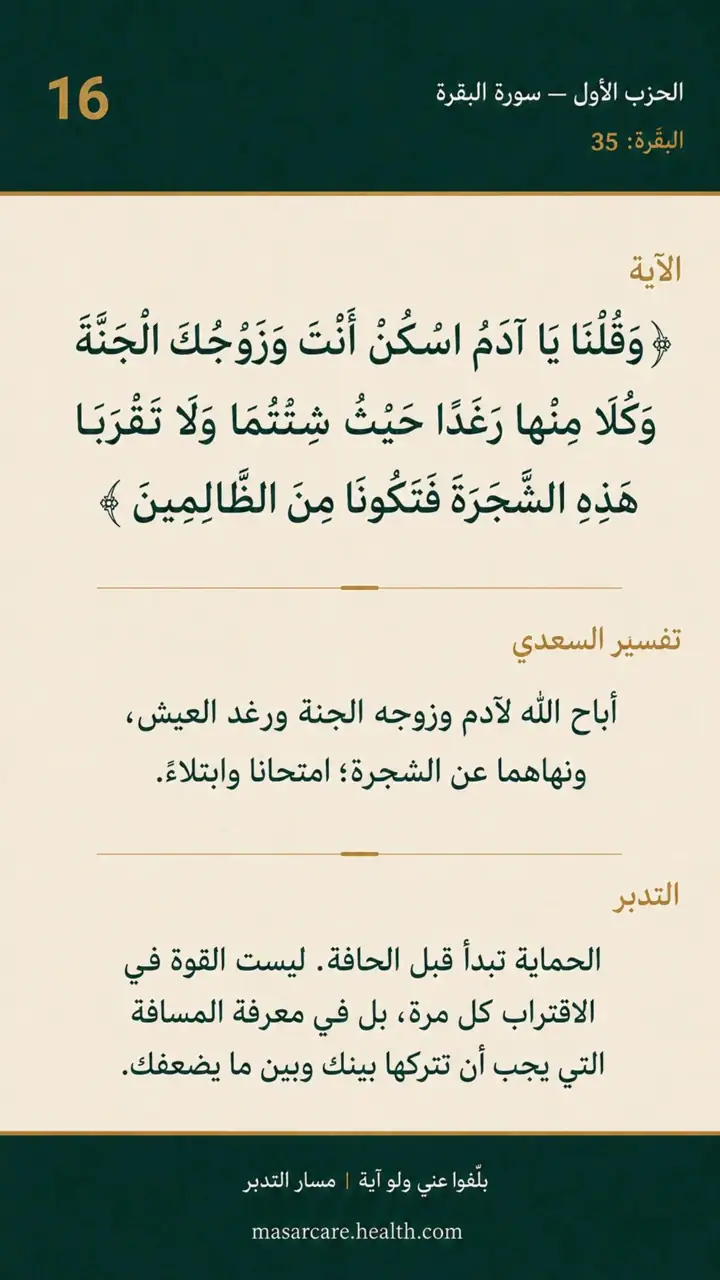 الحزب الأول — سورة البقرة
16
البقَرة: 35
الآية
﴿وَقُلْنَا يَا آدَمُ اسْكُنْ أَنْتَ وَزَوْجُكَ الْجَنَّةَ
وَكُلَا مِنْها رَغَدًا حَيْثُ شِتْتُمَا وَلَا تَقْرَبَا
هَذِهِ الشَّجَرَةَ فَتَكُونَا مِنَ الظَّالِمِينَ﴾
تفسير السعدي
أباح الله لآدم وزوجه الجنة ورغد العيش،
ونهاهما عن الشجرة؛ امتحانا وابتلاءً.
التدبر
الحماية تبدأ قبل الحافة. ليست القوة في
الاقتراب كل مرة، بل في معرفة المسافة
التي يجب أن تتركها بينك وبين ما يضعفك.
بلّغوا عني ولو آية | مسار التدبر
masarcare.health.com